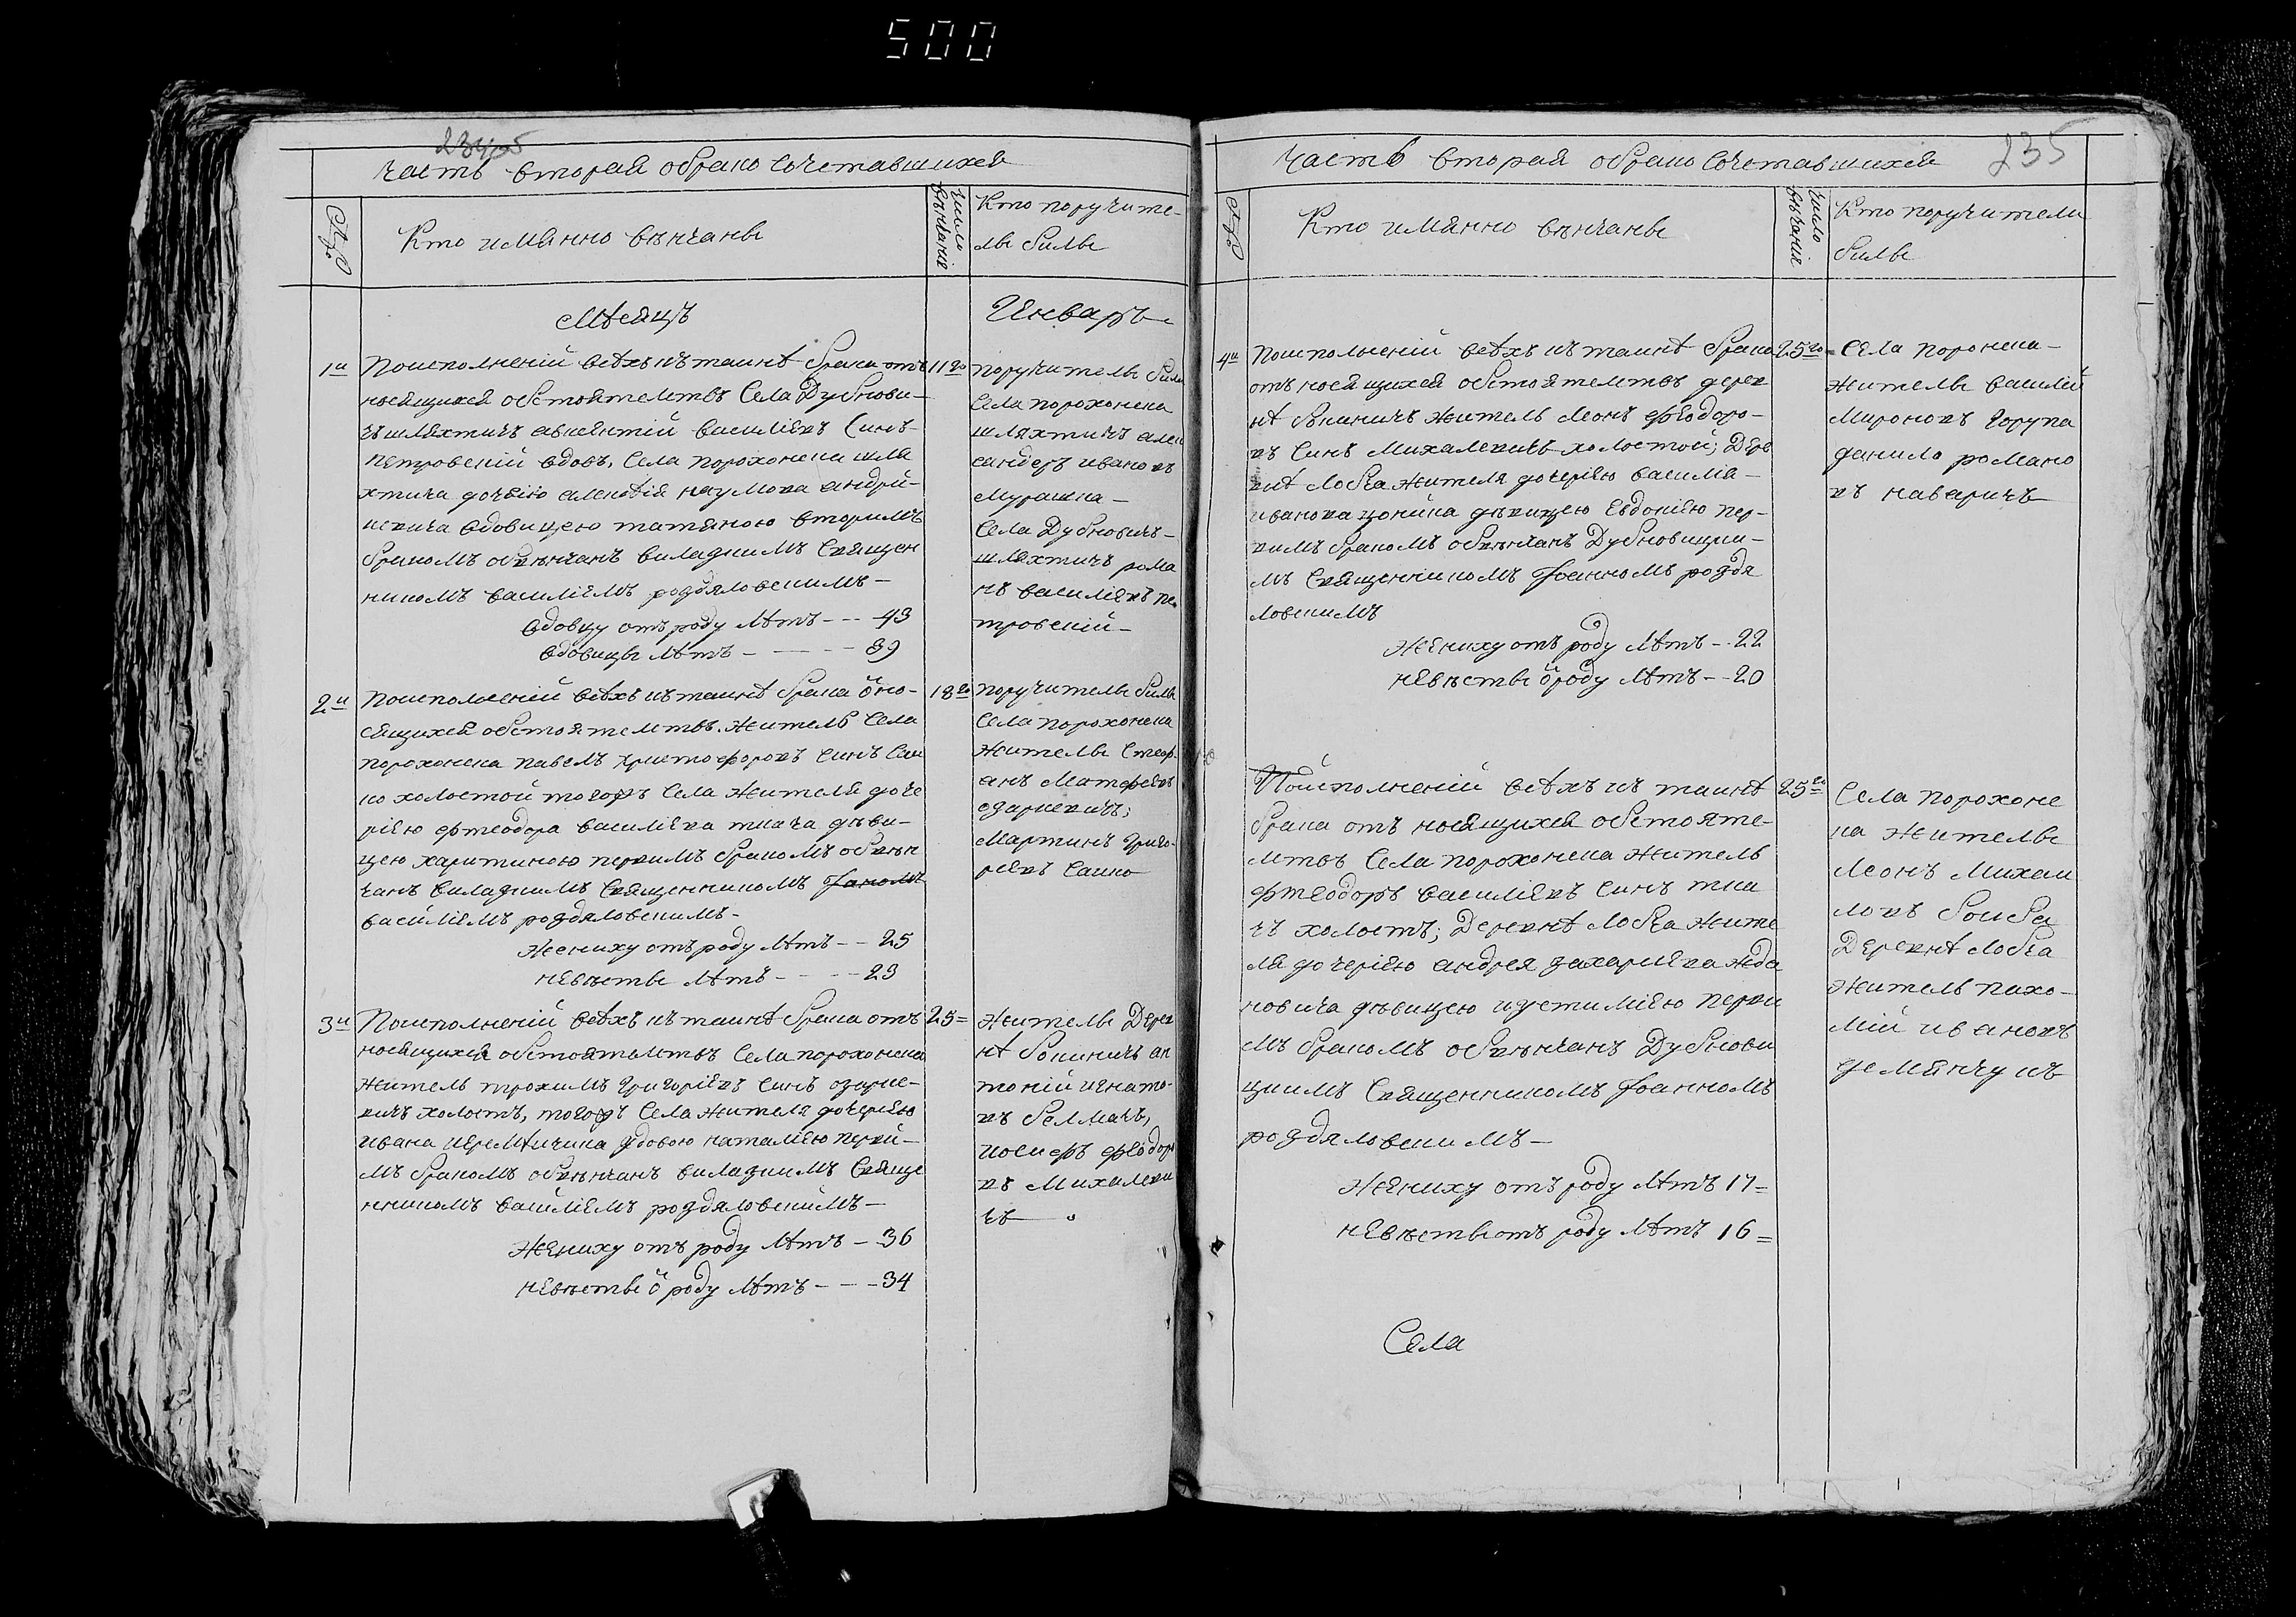 500
часть вторая обрако сочетавшихся
Кто имянно вѣнчаны
число вѣнчания
Кто поручите-
лы были
Мѣсяцъ
Генваръ
1и
Поисполненій всѣхъ къ таинѣ брака отъ
11го
носящихся обстоятелствъ Села Дубнови-
чъ шляхтичъ авксентій василіевъ Синъ
петровскій вдовъ, Села порохонска шля
хтича дочерію алексѣя наумова андрій-
невича вдовицею татяною вторимъ
бракомъ обвѣнчанъ викладнимъ Священ
никомъ василіемъ роздяловскимъ-
вдовцу отъ роду лѣтъ - - - 43
вдовицы лѣтъ - - - - 39
поручителы були
Села порохонска
шляхтичъ алек
сандеръ ивановъ
мурашка-
Села Дубновичъ-
шляхтичъ рома
нъ василіевъ пе
тровскій-
2и
Поисполненій всѣхъ къ таинѣ брака ѿ но-
18го
сящихся обстоятелствъ. Житель Села
порохонска павелъ христофоровъ синъ Саи
ко холостой тогожъ Села жителя доче
рію фтеодора василіева ткача дѣви-
цею харитиною первимъ бракомъ обвѣн
чанъ викладнимъ Священникомъ
василіемъ роздяловскимъ-
жениху отъ роду лѣтъ - - 25
невѣсты лѣтъ - - - - 23
поручителы були
Села порохонска
жителы Стеф
анъ Матфеевъ
озаркевичъ;
Мартинъ Григо-
ріевъ Саико
3и
Поисполненій всѣхъ къ таинѣ брака отъ
25=
носящихся обстоятелствъ Села порохонска
житель трохимъ Григоріевъ синъ озарке-
вичъ холостъ, тогожъ Села жителя дочерію
ивана иеремѣичина вдовою наталією перви-
мъ бракомъ обвѣнчанъ викладнимъ Свяще
нникомъ василіемъ роздяловскимъ-
Жениху отъ роду лѣтъ - 36
невѣсты ѿ роду лѣтъ - - - 34
жителы Дерев
нѣ бокиничъ ан
тоній игнато-
въ белмачъ,
иосифъ феодоро
въ михалеви
чъ
часть вторая обрако сочетавшихся
235
Кто имянно вѣнчаны
число вѣнчания
Кто поручители
билы
4и
Поисполненій всѣхъ къ таинѣ брака
25го
отъ носящихся обстоятелствъ дерев
нѣ бокиничъ житель леонъ феодоро-
въ Синъ михалевичъ холостой; Дерев
нѣ лобча жителя дочерією василія-
иванова цопика дѣвицею Евдокією пер-
вимъ бракомъ обвѣнчанъ Дубновицки-
мъ Священникомъ Иоанномъ роздя
ловскимъ
жениху отъ роду лѣтъ - - 22
невѣсты ѿ роду лѣтъ - - 20
Села поронска-
жителы василій
мироновъ горупа
данило романо
въ наваричъ
Поисполненій всѣхъ къ таинѣ
25го
брака отъ носящихся обстояте-
лствъ Села порохонска житель
фтеодоръ василіевъ синъ тка
чъ холостъ; Деревнѣ лобча жите
ля дочерією андрея захаріева жда
новича дѣвицею иустиміею перви
мъ бракомъ обвѣнчанъ Дубнови
цкимъ Священникомъ Иоанномъ
роздяловскимъ-
Жениху отъ роду лѣтъ 17=
невѣсты отъ роду лѣтъ 16=
Села порохонс
ка жителы
леонъ михаи
ловъ боиба
Деревнѣ лобча
житель пахо-
мій ивановъ
демянчукъ
Села